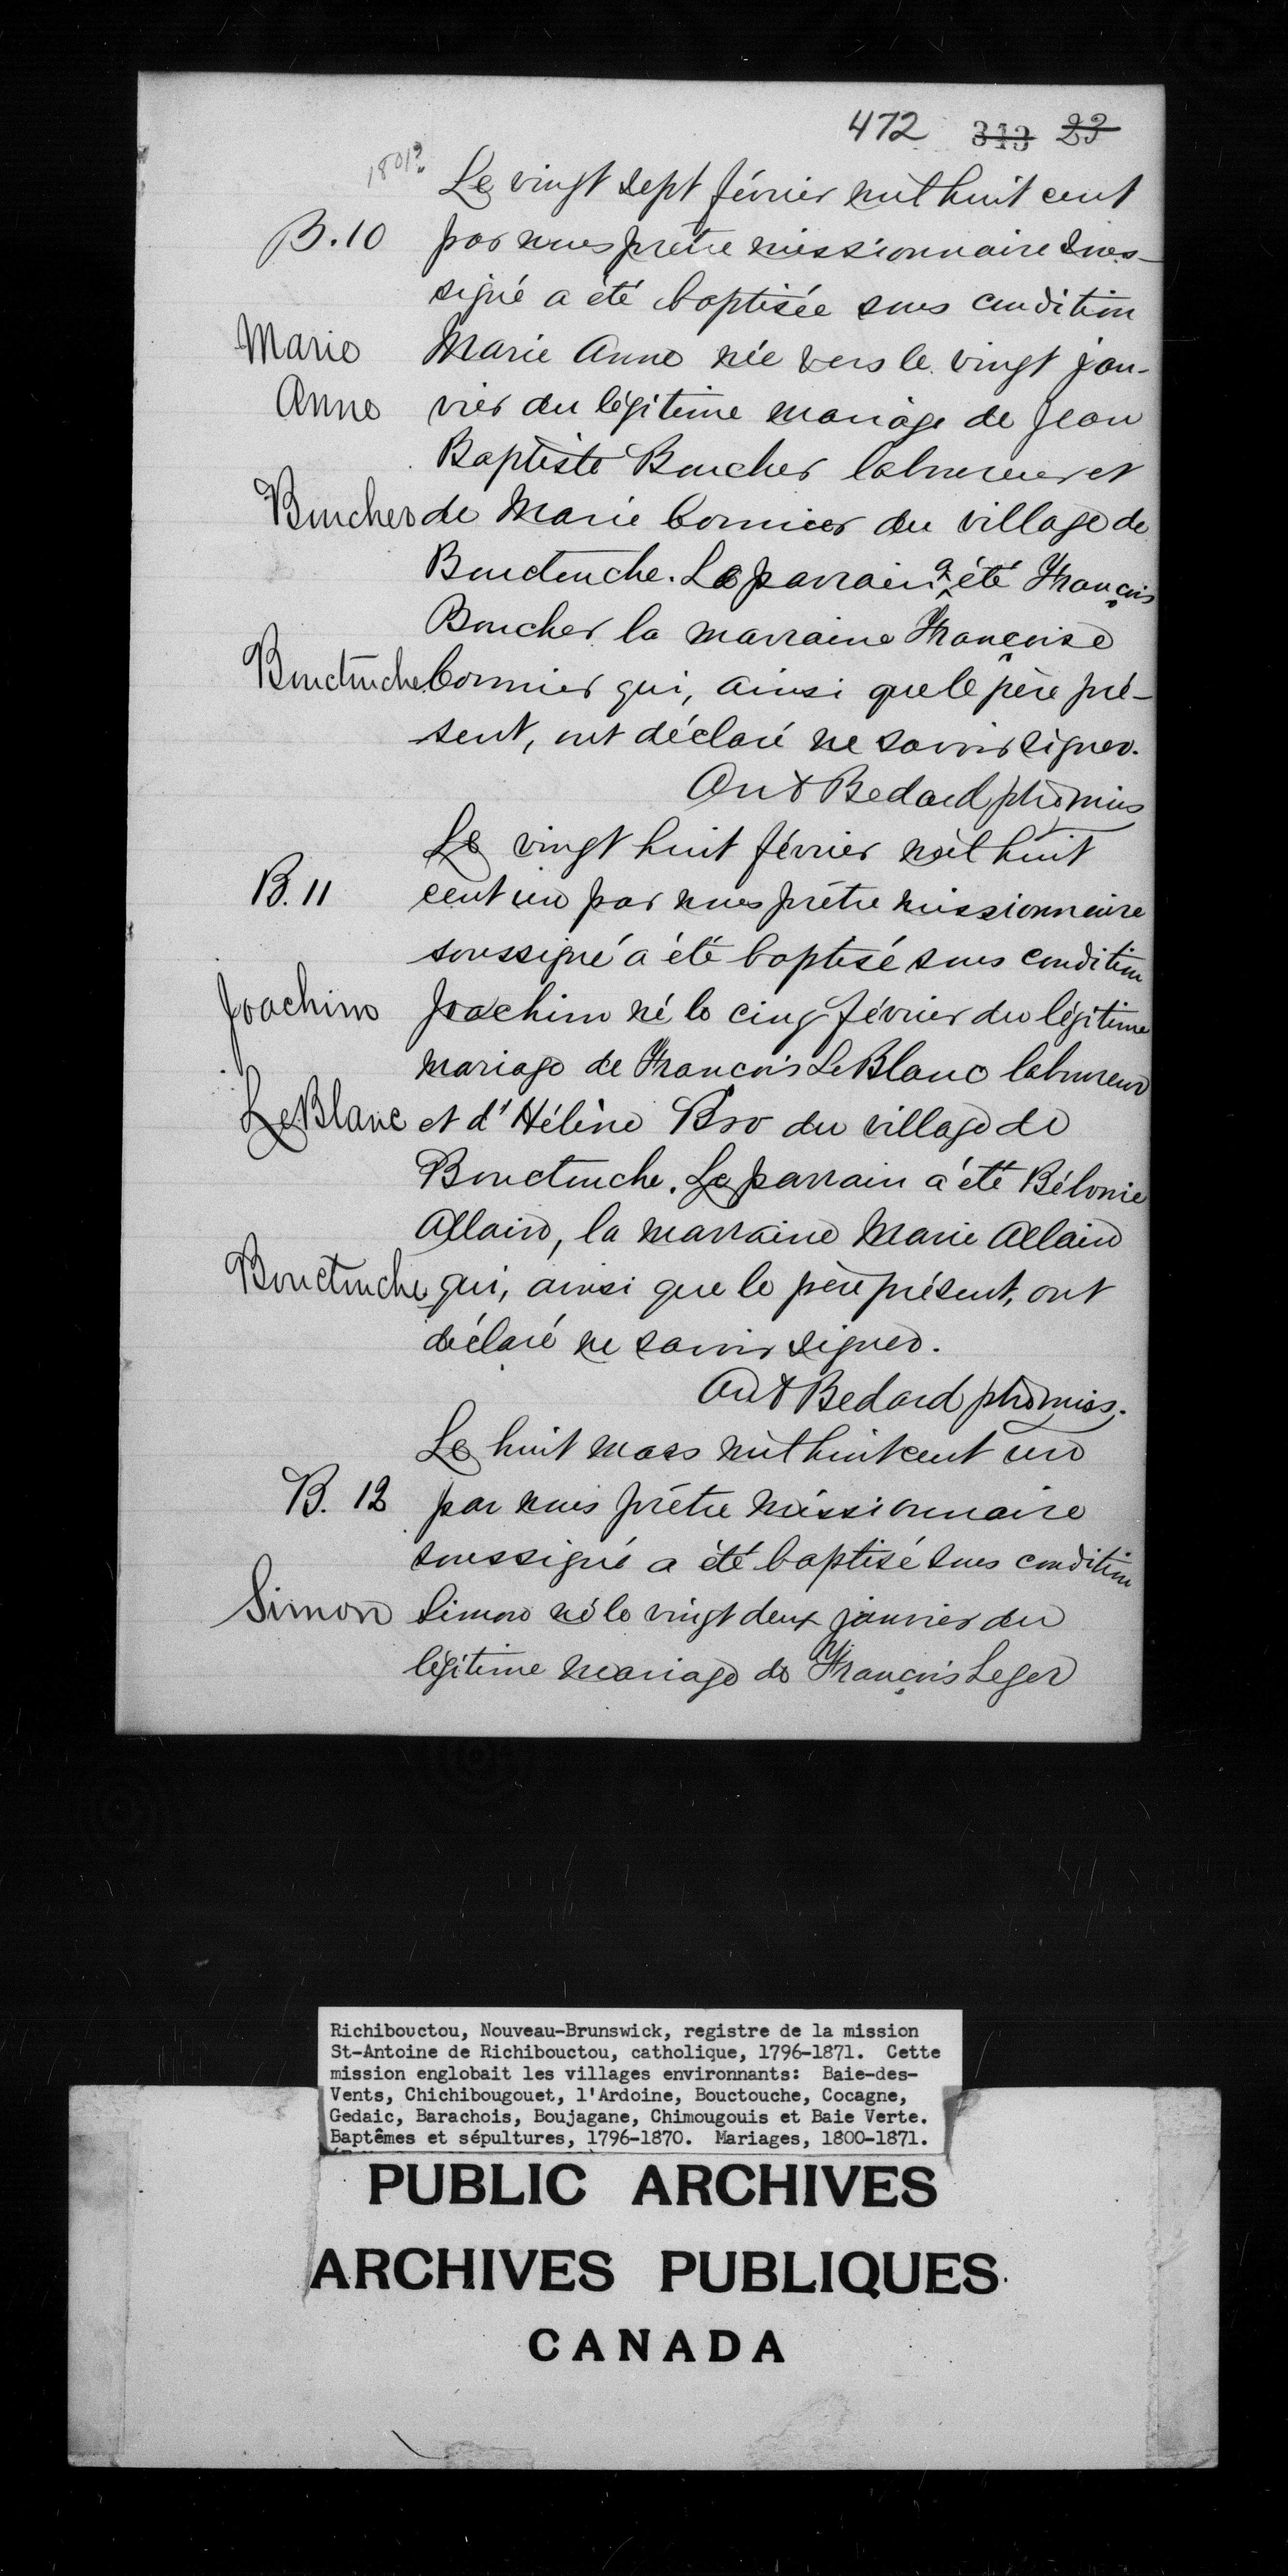 472 313 23
1801?
Le vingt sept février mil huit cent
B.10 par nous prêtre missionnaire sous-
signé a été baptisée sous condition
Marie Marie Anne née vers le vingt jan-
Anne vier du légitime mariage de Jean
Baptiste Boucher laboureur et
Boucher de Marie Cormier du village de
Bouctouche. Le parrain a été François
Boucher la marraine Françoise
Bouctouche Cormier qui, ainsi que le père pré-
sent, ont déclaré ne savoir signer.
Ant Bedard ptre miss
Le vingt huit février mil huit
B. 11 cent un par nous prêtre missionnaire
soussigné a été baptisé sous condition
Joachim Joachim né le cinq février du légitime
mariage de François LeBlanc laboureur
LeBlanc et d'Hélène Bro du village de
Bouctouche. Le parrain a été Bélonie
Allain, la marraine Marie Allain
Bouctouche qui, ainsi que le père présent, ont
déclaré ne savoir signer.
Ant Bedard ptre miss.
Le huit mars mil huit cent un
B. 12 par nous prêtre missionnaire
soussigné a été baptisé sous condition
Simon Simon né le vingt deux janvier du
légitime mariage de François Leger
Richibouctou, Nouveau-Brunswick, registre de la mission
St-Antoine de Richibouctou, catholique, 1796-1871. Cette
mission englobait les villages environnants: Baie-des-
Vents, Chichibougouet, l'Ardoine, Bouctouche, Cocagne,
Gedaic, Barachois, Boujagane, Chimougouis et Baie Verte.
Baptêmes et sépultures, 1796-1870. Mariages, 1800-1871.
PUBLIC ARCHIVES
ARCHIVES PUBLIQUES
CANADA